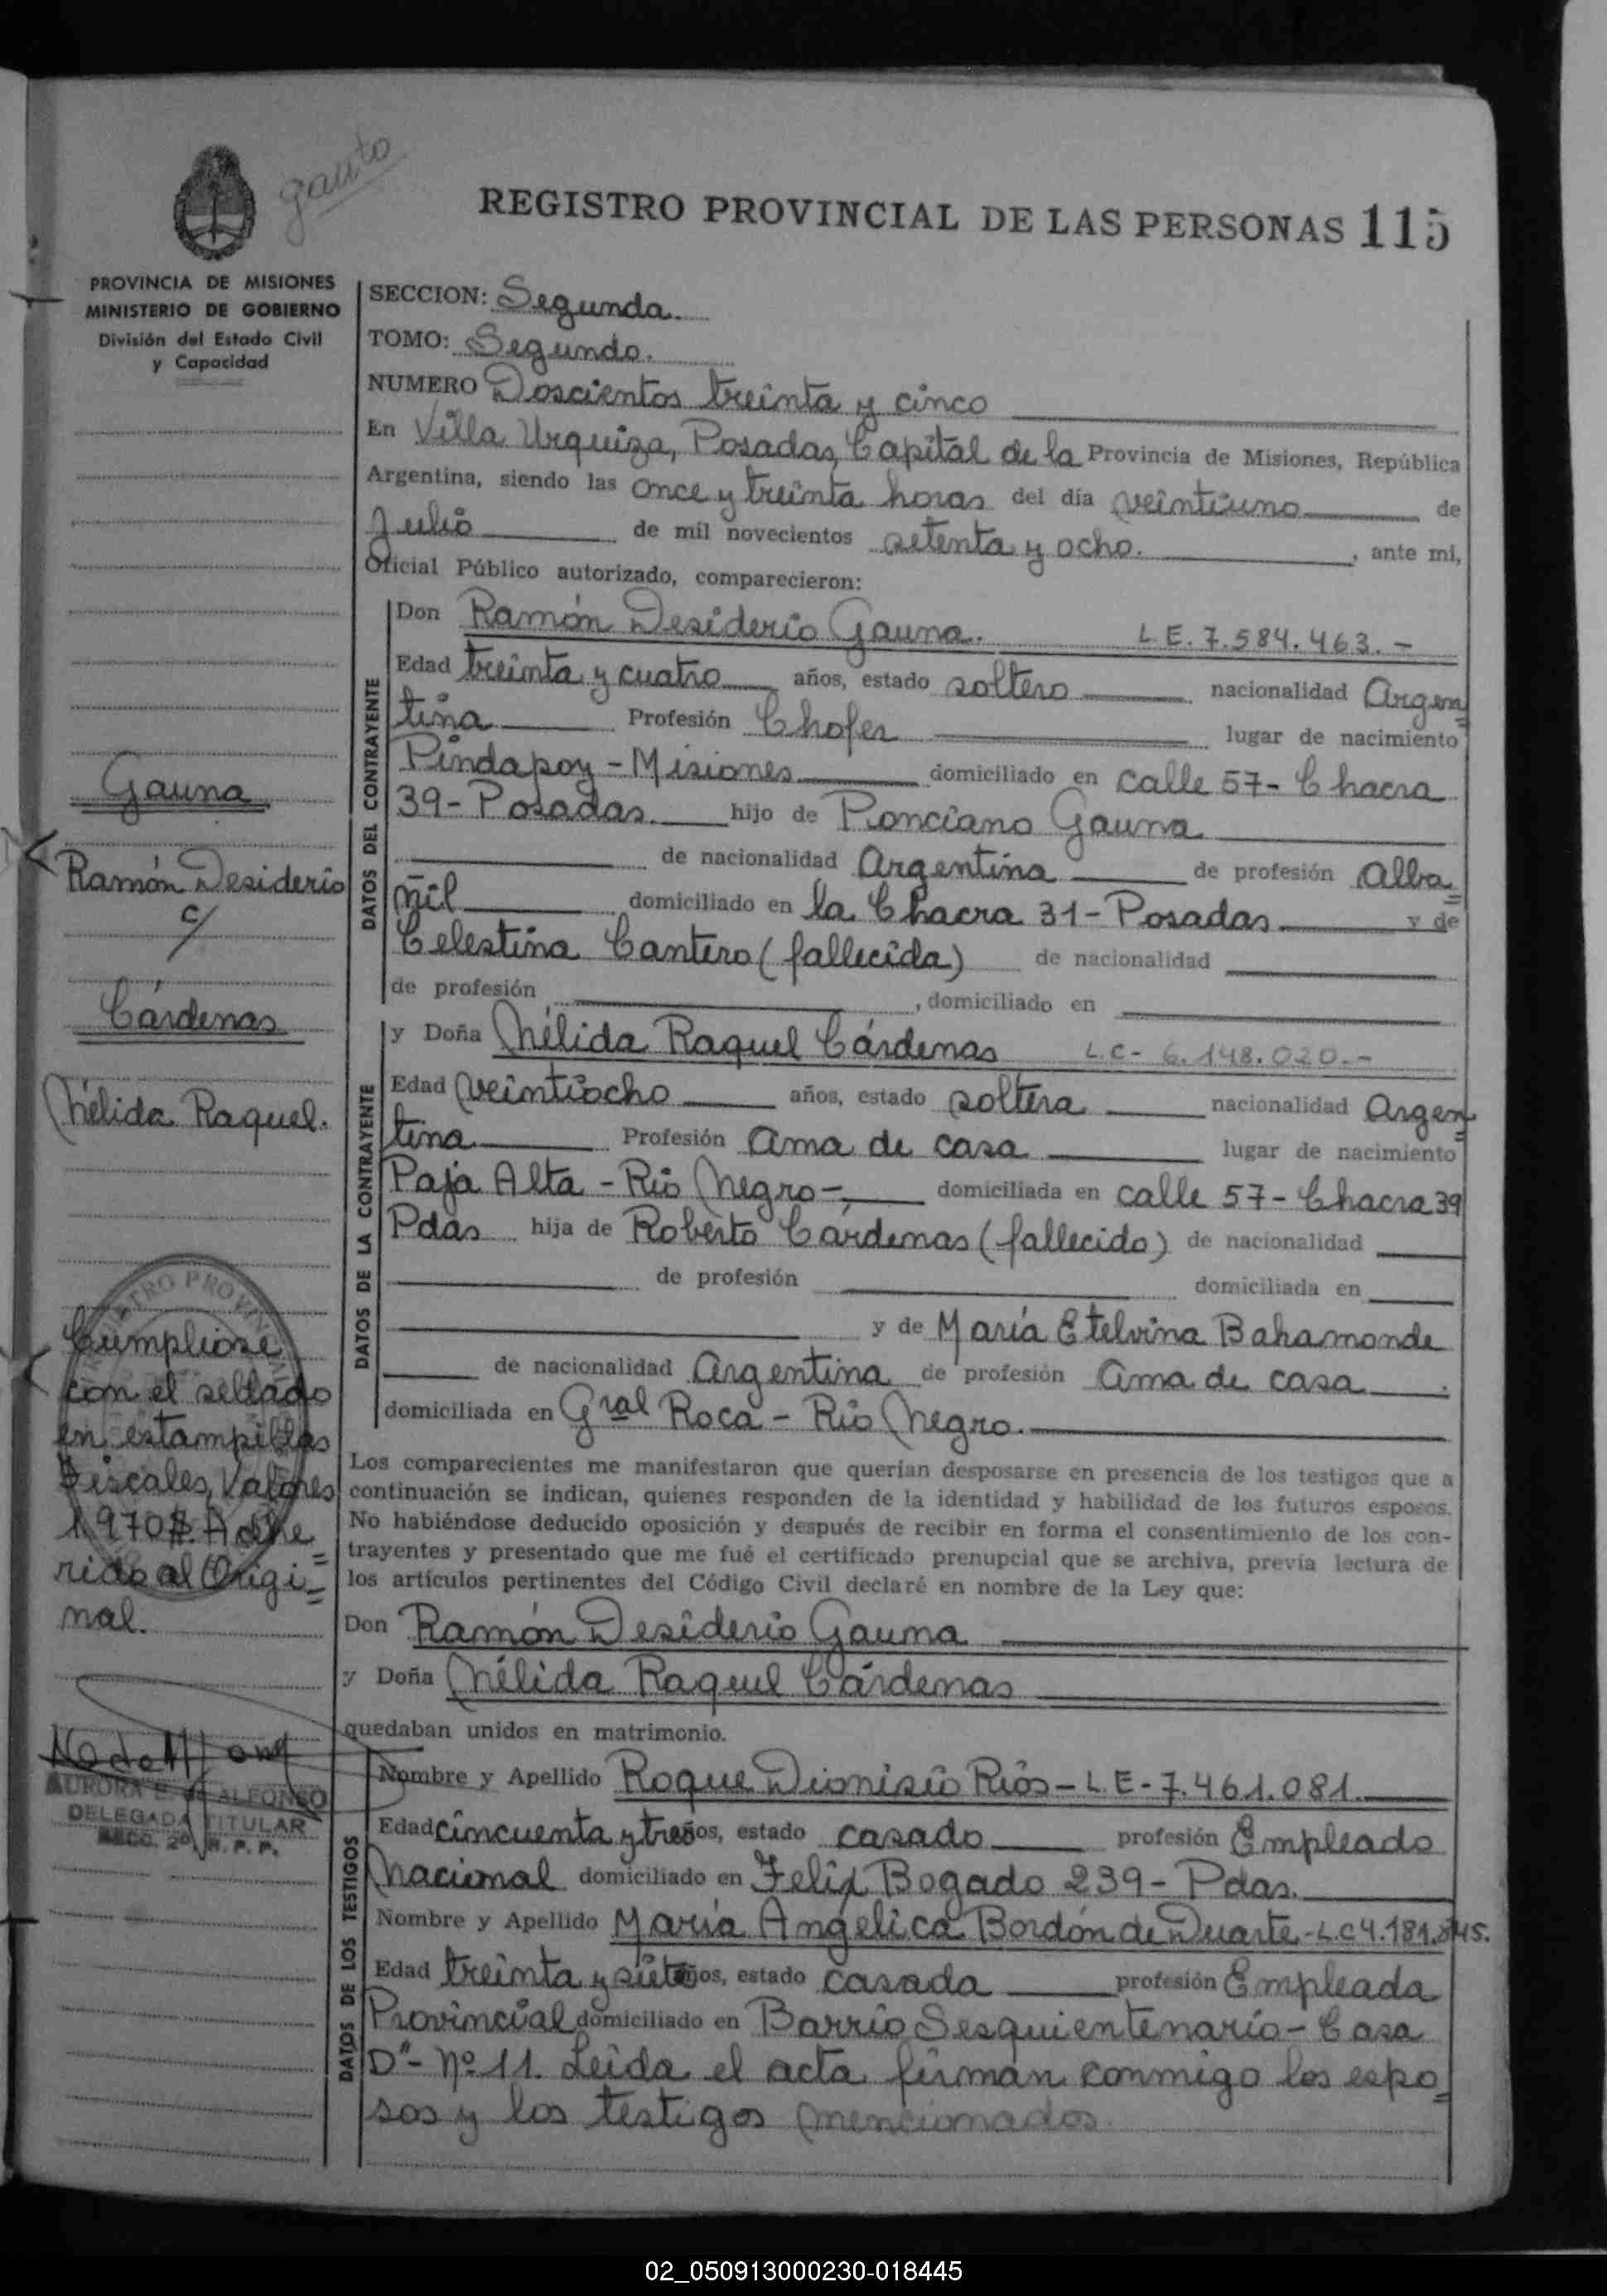 gauto
REGISTRO PROVINCIAL DE LAS PERSONAS 115
PROVINCIA DE MISIONES
MINISTERIO DE GOBIERNO
División del Estado Civil
y Capacidad
SECCION: Segunda.
TOMO: Segundo.
NUMERO Doscientos treinta y cinco
En Villa Urquiza, Posadas, Capital de la Provincia de Misiones, República
Argentina, siendo las once y treinta horas del día veintiuno de
Julio de mil novecientos setenta y ocho. , ante mi,
Oficial Público autorizado, comparecieron:
DATOS DEL CONTRAYENTE
Don Ramón Desiderio Gauna. L.E. 7.584.463.-
Edad treinta y cuatro años, estado soltero nacionalidad Argen=
tina Profesión Chofer lugar de nacimiento
Pindapoy - Misiones domiciliado en calle 57 - Chacra
39 - Posadas. hijo de Ponciano Gauna
de nacionalidad Argentina de profesión Alba=
ñil domiciliado en la Chacra 31 - Posadas y de
Celestina Cantero (fallecida) de nacionalidad
de profesión , domiciliado en
DATOS DE LA CONTRAYENTE
y Doña Nélida Raquel Cárdenas L.C- 6.148.020.-
Edad veintiocho años, estado soltera nacionalidad Argen=
tina Profesión ama de casa lugar de nacimiento
Paja Alta - Río Negro - domiciliada en calle 57 - Chacra 39
Pdas hija de Roberto Cárdenas (fallecido) de nacionalidad
de profesión domiciliada en
y de María Etelvina Bahamonde
de nacionalidad Argentina de profesión ama de casa
domiciliada en Gral Roca - Río Negro.
Los comparecientes me manifestaron que querían desposarse en presencia de los testigos que a
continuación se indican, quienes responden de la identidad y habilidad de los futuros esposos.
No habiéndose deducido oposición y después de recibir en forma el consentimiento de los con-
trayentes y presentado que me fué el certificado prenupcial que se archiva, previa lectura de
los artículos pertinentes del Código Civil declaré en nombre de la Ley que:
Don Ramón Desiderio Gauna
y Doña Nélida Raquel Cárdenas
quedaban unidos en matrimonio.
DATOS DE LOS TESTIGOS
Nombre y Apellido Roque Dionisio Ríos - L.E - 7.461.081.
Edad cincuenta y tres años, estado casado profesión Empleado
Nacional domiciliado en Felix Bogado 239 - Pdas.
Nombre y Apellido María Angélica Bordón de Duarte - L.C 4.181.845.
Edad treinta y siete años, estado casada profesión Empleada
Provincial domiciliado en Barrio Sesquientenario - Casa
D" - Nº 11. Leída el acta firman conmigo los espo=
sos y los testigos mencionados.
Gauna
Ramón Desiderio
c/
Cárdenas
Nélida Raquel.
Cumpliose
con el sellado
en estampillas
Fiscales, Valores
1970$. Adhe
rido al Origi=
nal.
AURORA E. de ALFONSO
DELEGADA TITULAR
SECC. 2º R. P. P.
02_050913000230-018445